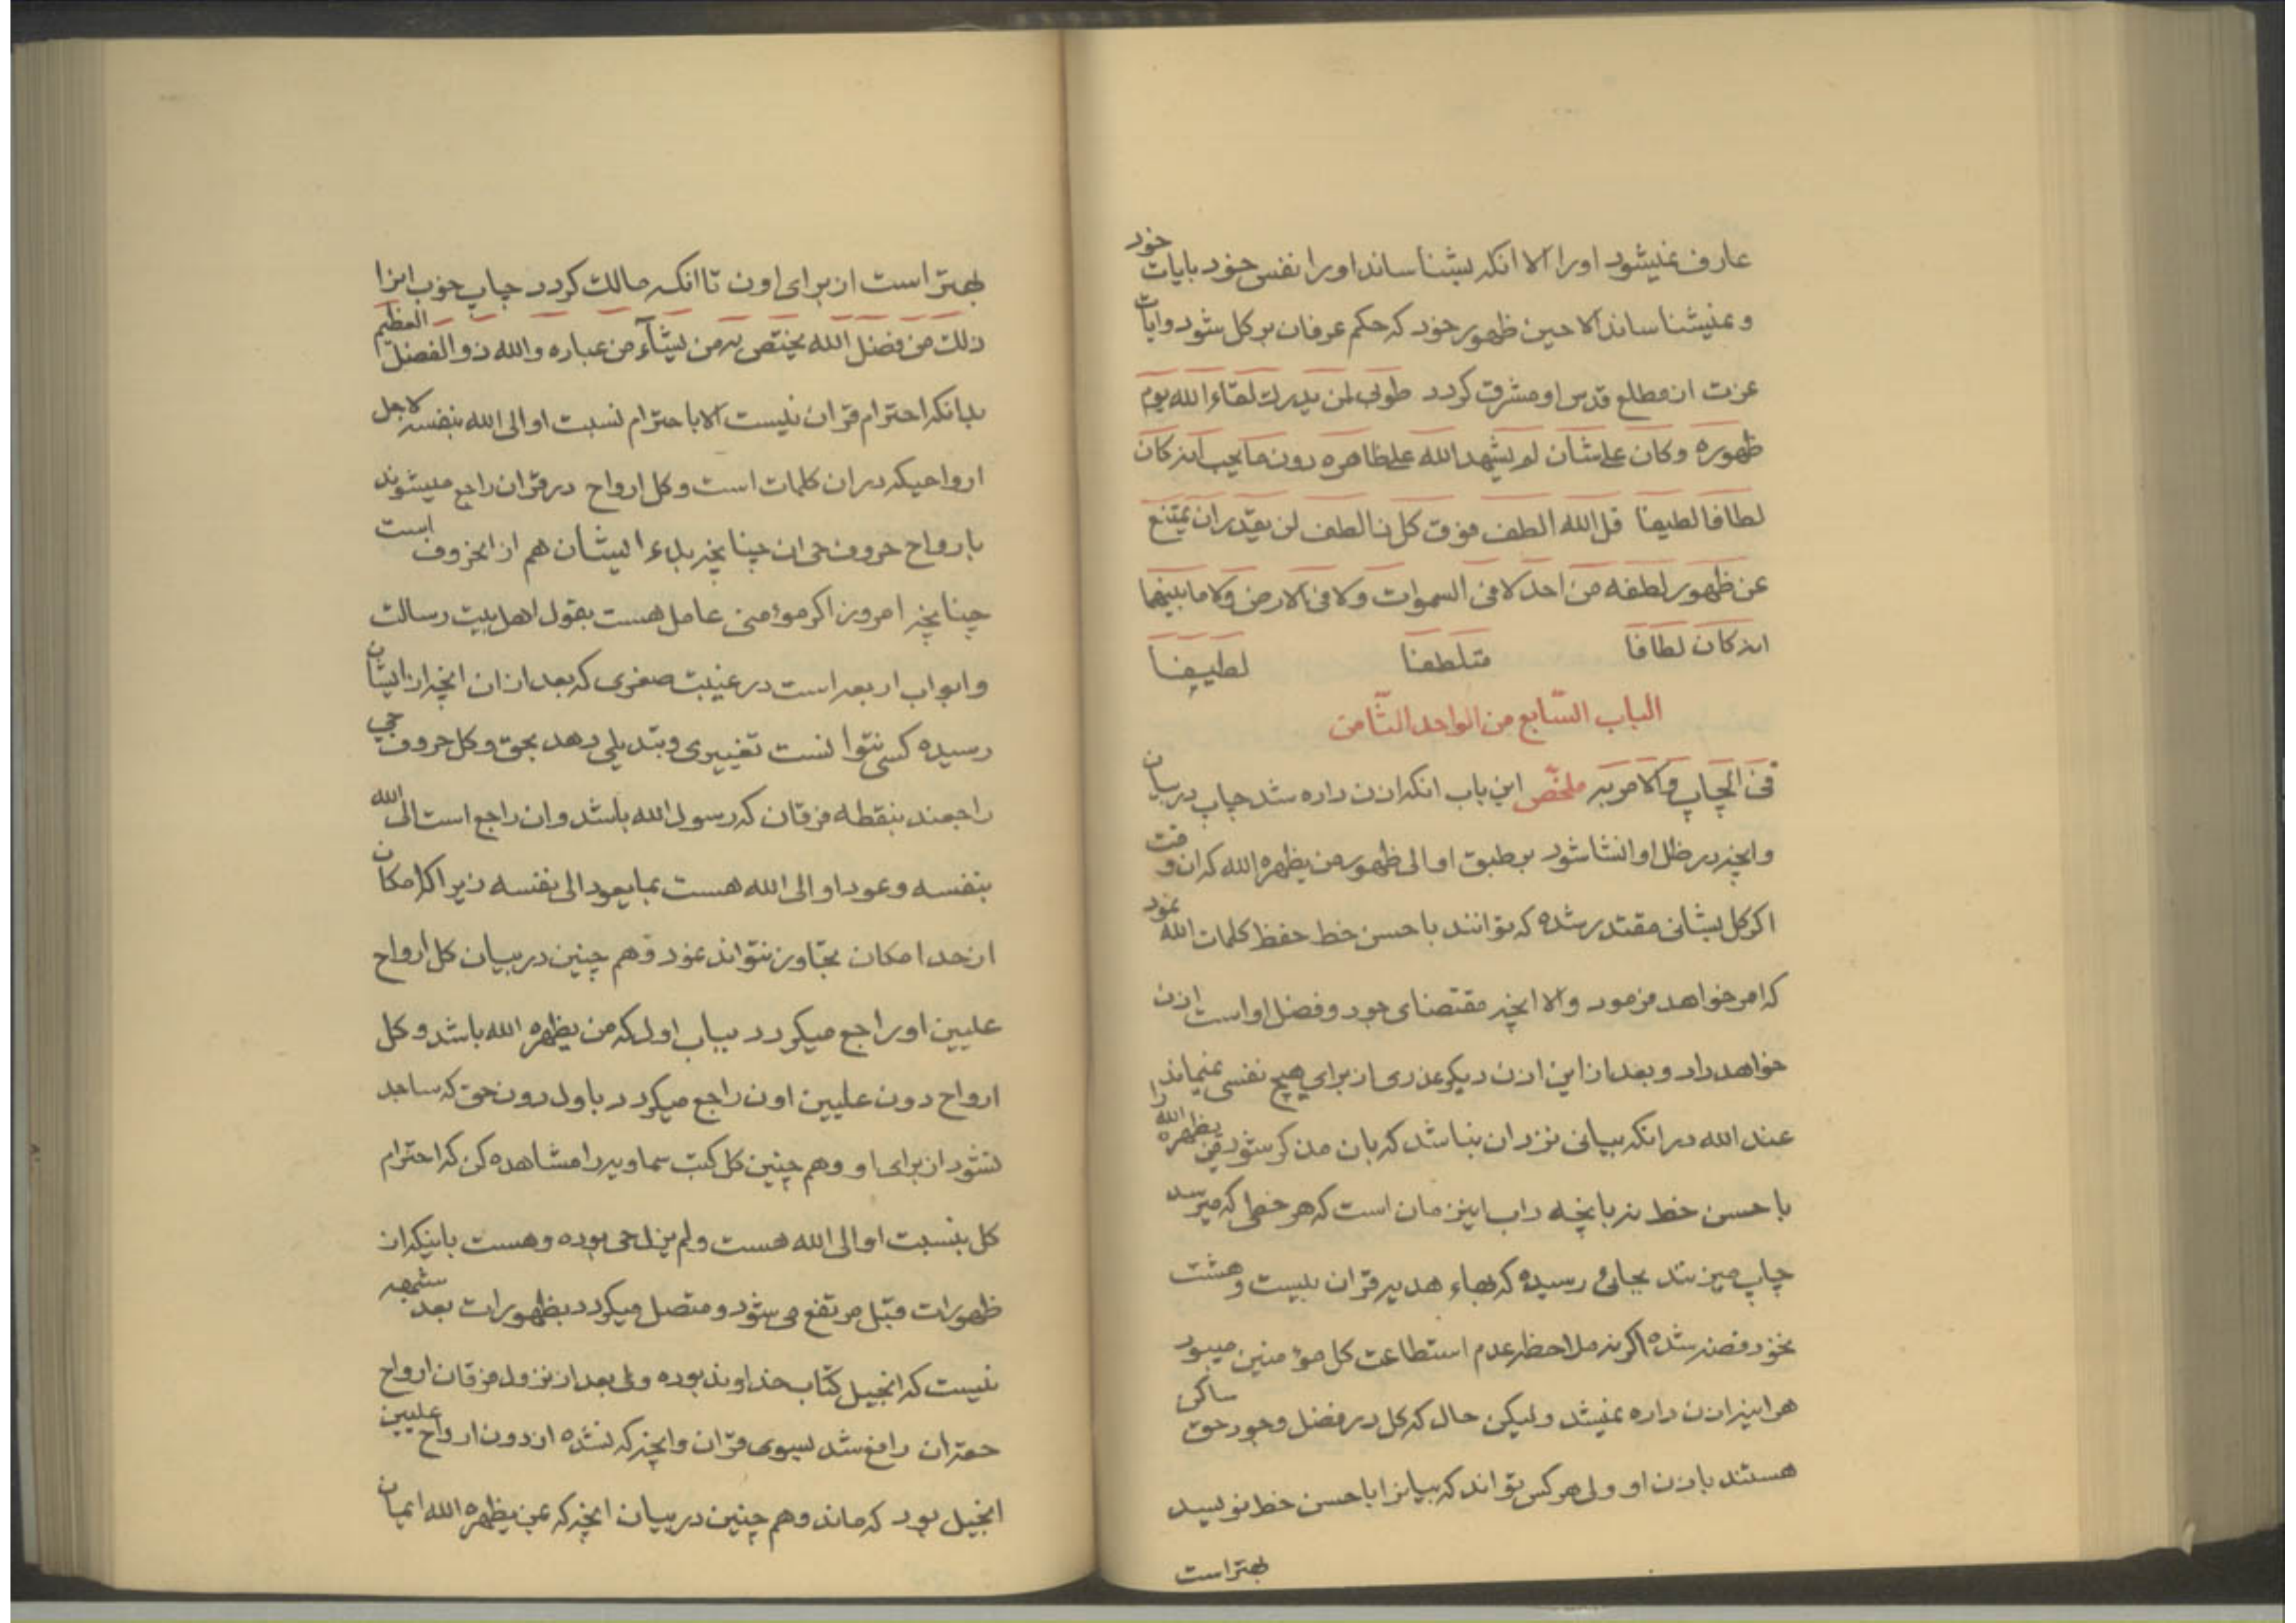 عارف نمیشود اورا الا انکه بشناساند اورا نفس خود بایات خود
و نمیشناساند الا حین ظهور خود که حکم عرفان بر کل شود وایات
عزت از مطلع قدس او مشرق کردد طوبی لمن یدرك لقاء الله یوم
ظهوره وکان علی شان لم یشهد الله علی ظاهره دون ما یحب انه کان
لطافا لطیفا قل الله الطف فوق کل ذا لطف لن یقدر ان یمتنع
عن ظهور لطفه من احد لا فی السموات ولا فی الارض ولا ما بینهما
انه کان لطافا متلطفا لطیفا
الباب السّابع من الواحد الثّامن
فی الچاپ والامر به ملخّص این باب انکه اذن داده شد چاپ در بیان
وانچه در ظل او انشا شود بر طبق او الی ظهور من یظهره الله که ان وقت
اکر کل بشانی مقتدر شده که توانند باحسن خط حفظ کلمات الله نمود
که امر خواهد فرمود والا انچه مقتضای جود وفضل او است اذن
خواهد داد وبعد از این اذن دیکر عذری از برای هیچ نفسی نمیماند
عند الله در انکه بیانی نزد ان نباشد که بان مذکر شود من یظهره الله را
باحسن خط نه بانچه داب اینزمان است که هر خطی که میرسد
چاپ میزنند بجائی رسیده که بهاء هدیه قران ببیست وهشت
نخود فضه شده اکر نه ملاحظه عدم استطاعت کل مؤمنین میبود
هراینه اذن داده نمیشد ولیکن حال که کل در فضل وجود حق ساکن
هستند باذن او ولی هر کس تواند که بیانرا باحسن خط نویسد
بهتر است
بهتر است از برای اون تا انکه مالك کردد چاپ خوب انرا
ذلك من فضل الله یختص به من یشآء من عباده والله ذو الفضل العظیم
بدانکه احترام قران نیست الا باحترام نسبت او الی الله بنفسه لاجل
ارواحیکه در ان کلمات است وکل ارواح در قران راجع میشوند
بارواح حروف حی ان چنانچه بدء ایشان هم از انحروف است
چنانچه امروز اکر مؤمنی عامل هست بقول اهل بیت رسالت
وابواب اربعه است در غیبت صغری که بعد از ان انچه از ایشان
رسیده کسی نتوانست تغییری وتبدیلی دهد بحق وکل حروف حی
راجعند بنقطه فرقان که رسول الله باشد وان راجع است الی الله
بنفسه وعود او الی الله هست بما یعود الی نفسه زیرا که امکان
از حد امکان تجاوز نتواند نمود وهم چنین در بیان کل ارواح
علیین او راجع میکردد بباب اول که من یظهره الله باشد وکل
ارواح دون علیین اون راجع میکردد باول دون حق که ساجد
نشود از برای او وهم چنین کل کتب سماویه را مشاهده کن که احترام
کل بنسبت او الی الله هست ولم یزل حی بوده وهست باینکه از
ظهورات قبل مرتفع می شود ومتصل میکردد بظهورات بعد شبهه
نیست که انجیل کتاب خداوند بوده ولی بعد از نزول فرقان ارواح
حقه ان رافع شد بسوی قران وانچه که نشده از دون ارواح علیین
انجیل بود که ماند وهم چنین در بیان انچه که بمن یظهره الله ایمان